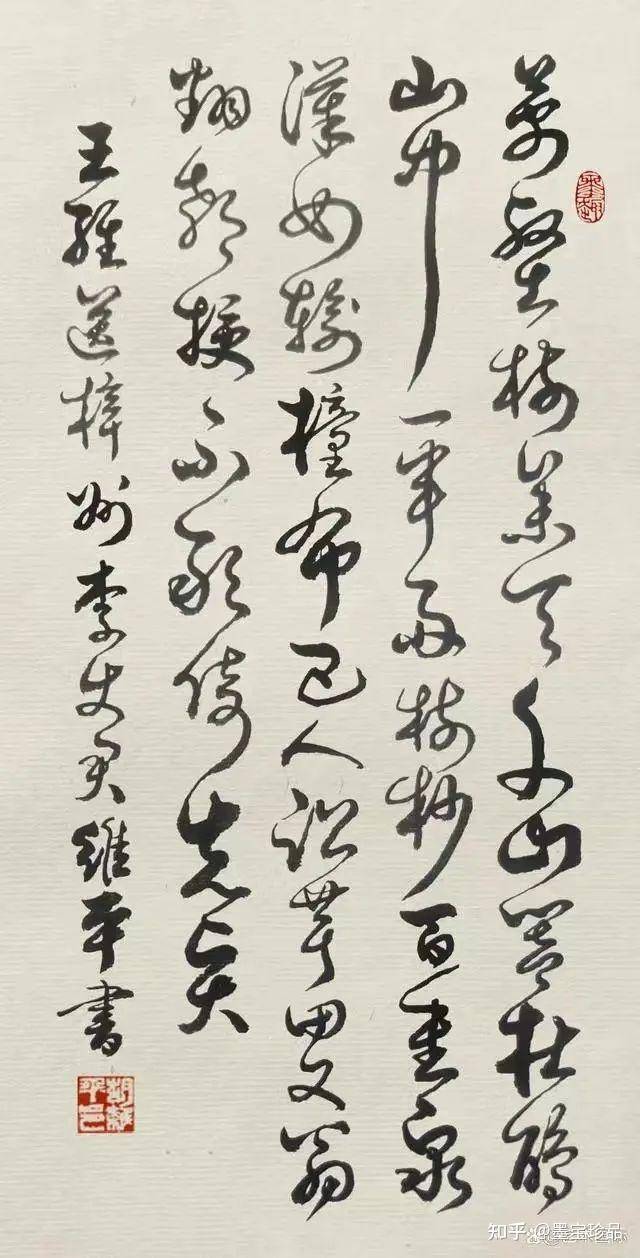 萬壑樹參天千山響杜鵑
山中一半雨樹杪百重泉
漢女輸橦布巴人訟芋田文翁
翻教授不敢倚先賢
王維送梓州李史君維平書
知乎 @墨宝珍品